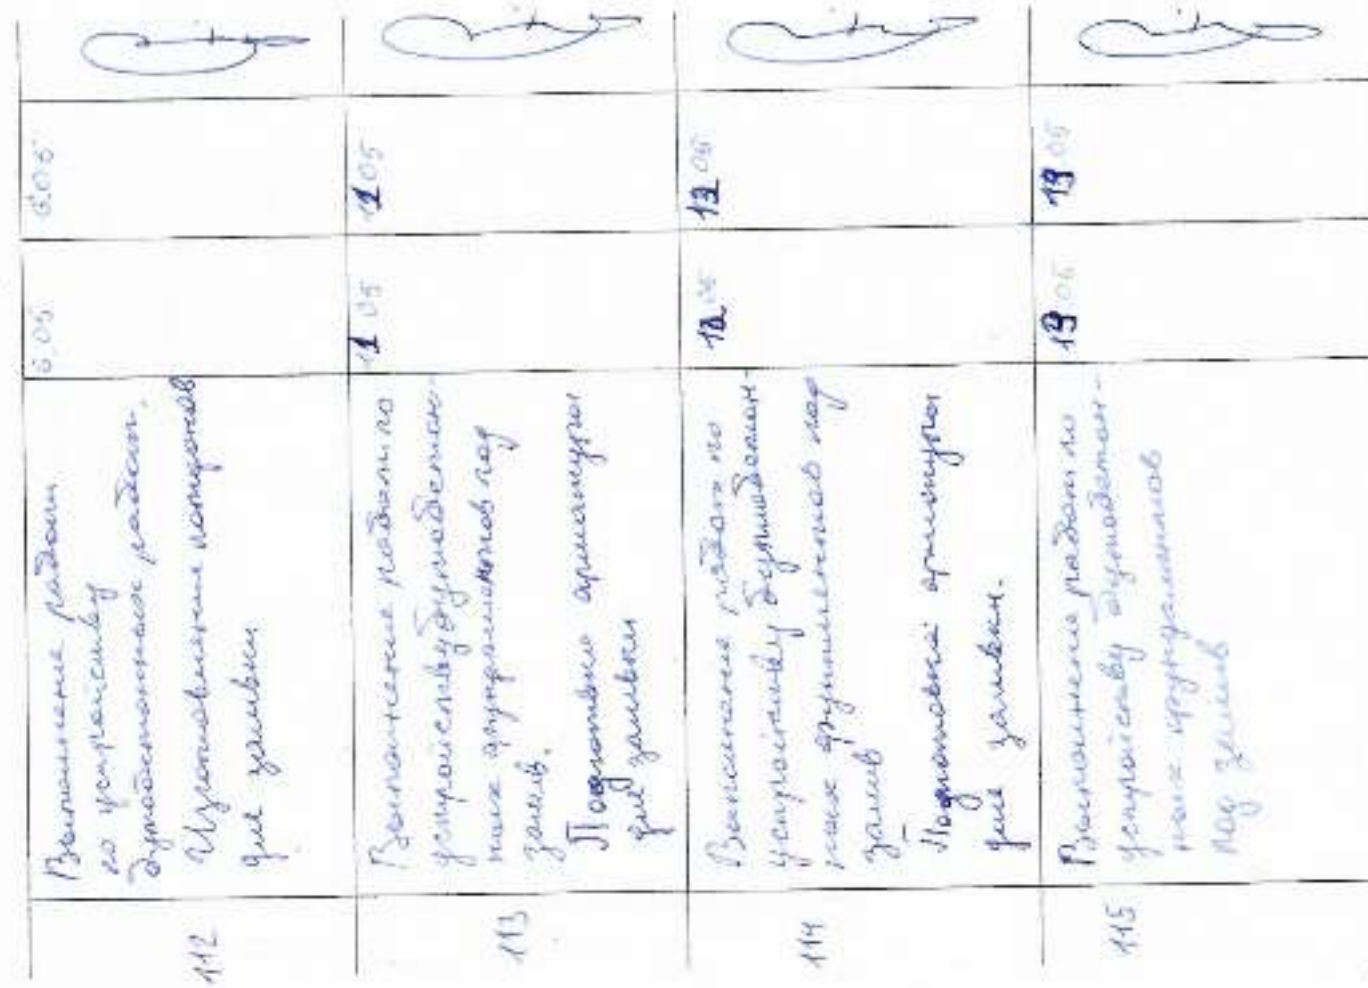 112
Выполнение работ
по устройству
бутобетонных работ.
Изготовление
для заливки
6.05
6.05
113
Выполнение работ по
устройству бутобетон-
ных фундаментов под
залив.
Подготовка арматуры
для заливки
11 05
11 05
114
Выполнение работ по
устройству бутобетон-
ных фундаментов под
залив
Подготовка арматуры
для заливки.
05
05
115
Выполнение работ по
устройству бутобетон-
ных фундаментов
под залив
19.05
19 05